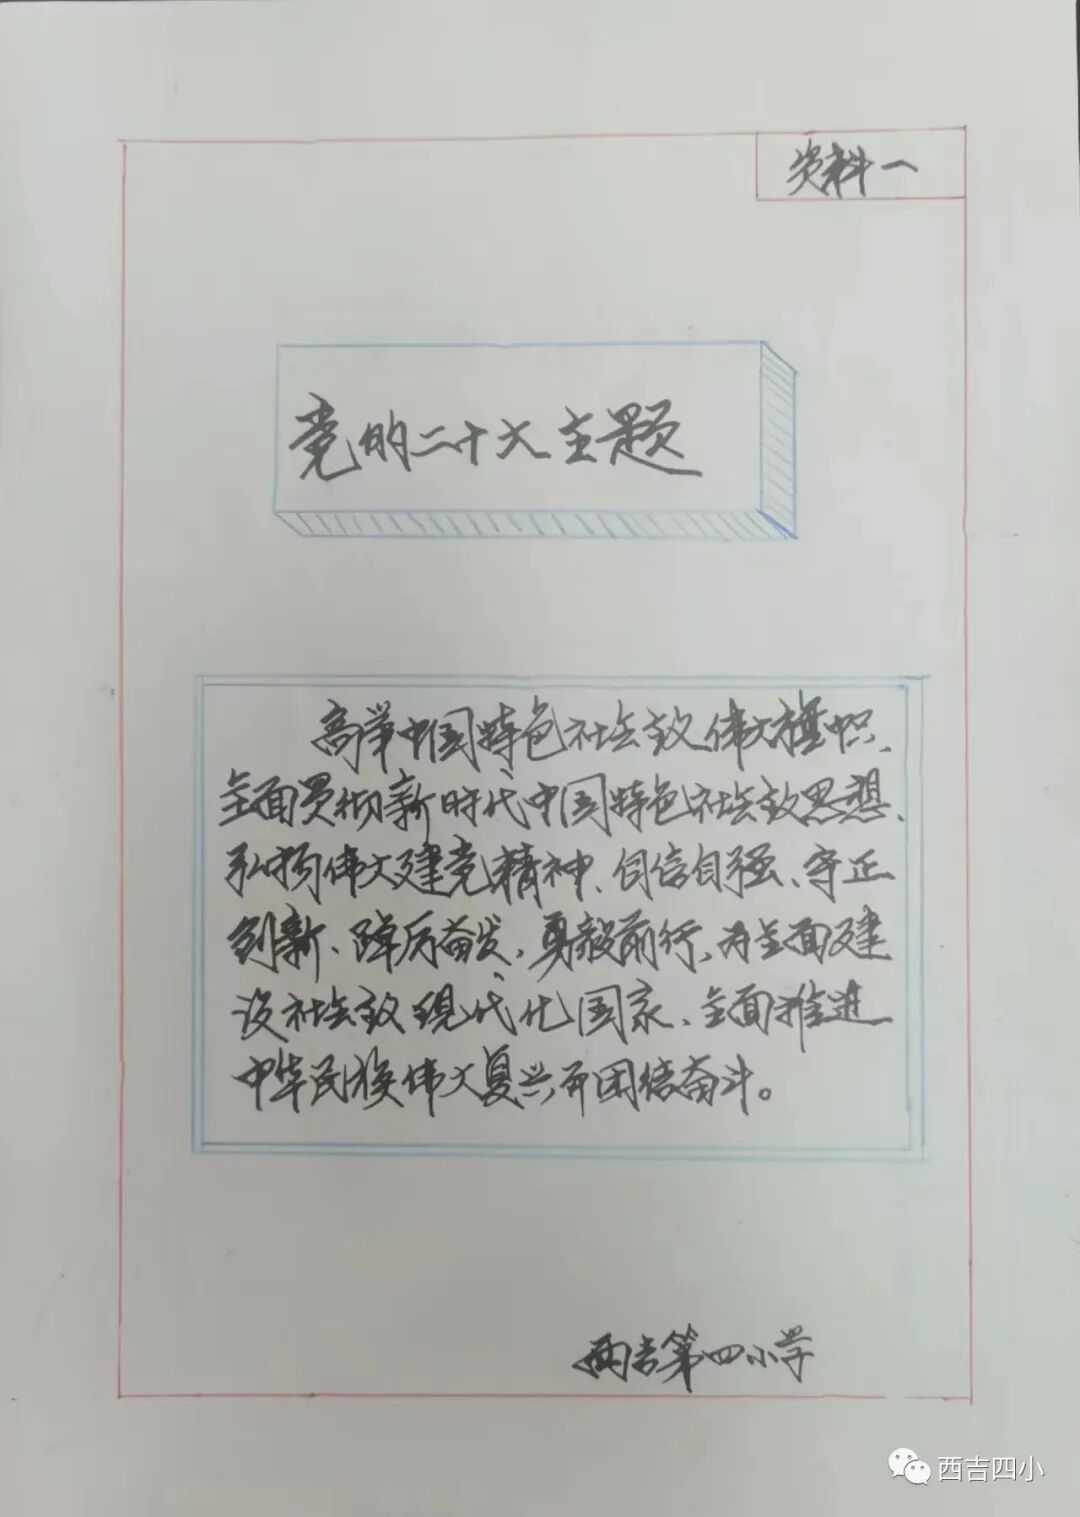 资料一
党的二十大主题
高举中国特色社会主义伟大旗帜、
全面贯彻新时代中国特色社会主义思想、
弘扬伟大建党精神、自信自强、守正
创新、踔厉奋发、勇毅前行，为全面建
设社会主义现代化国家、全面推进
中华民族伟大复兴而团结奋斗。
西吉第四小学
西吉四小